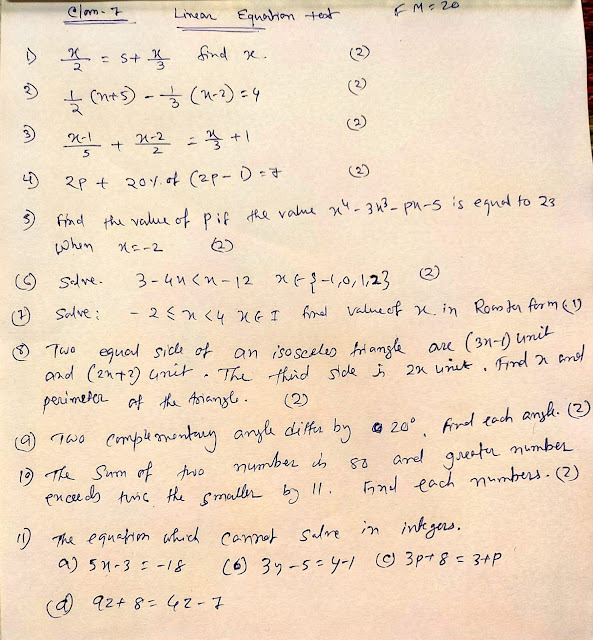 Class-7 Linear Equation test FM=20
1) x/2 = 5+ x/3 find x. (2)
2) 1/2 (x+5) - 1/3 (x-2) = 4 (2)
3) x-1/5 + x-2/2 = x/3 + 1 (2)
4) 2p + 20% of (2p-1) = 7 (2)
5) Find the value of p if the value x⁴-3x³-px-5 is equal to 23
when x=-2 (2)
(6) Solve. 3-4x<x-12 x∈{-1,0,1,2} (2)
(7) Solve: -2≤x<4 x∈I find value of x in Roaster form (1)
(8) Two equal side of an isosceles triangle are (3x-1) unit
and (2x+2) unit. The third side is 2x unit. Find x and
perimeter of the triangle. (2)
(9) Two complementary angle differ by 20°. find each angle. (2)
10) The sum of two number is 80 and greater number
exceeds twice the smaller by 11. Find each numbers. (2)
11) The equation which cannot solve in integers.
a) 5x-3 = -18 (b) 3y-5=y-1 (c) 3p+8 = 3+p
(d) 9z+8=4z-7